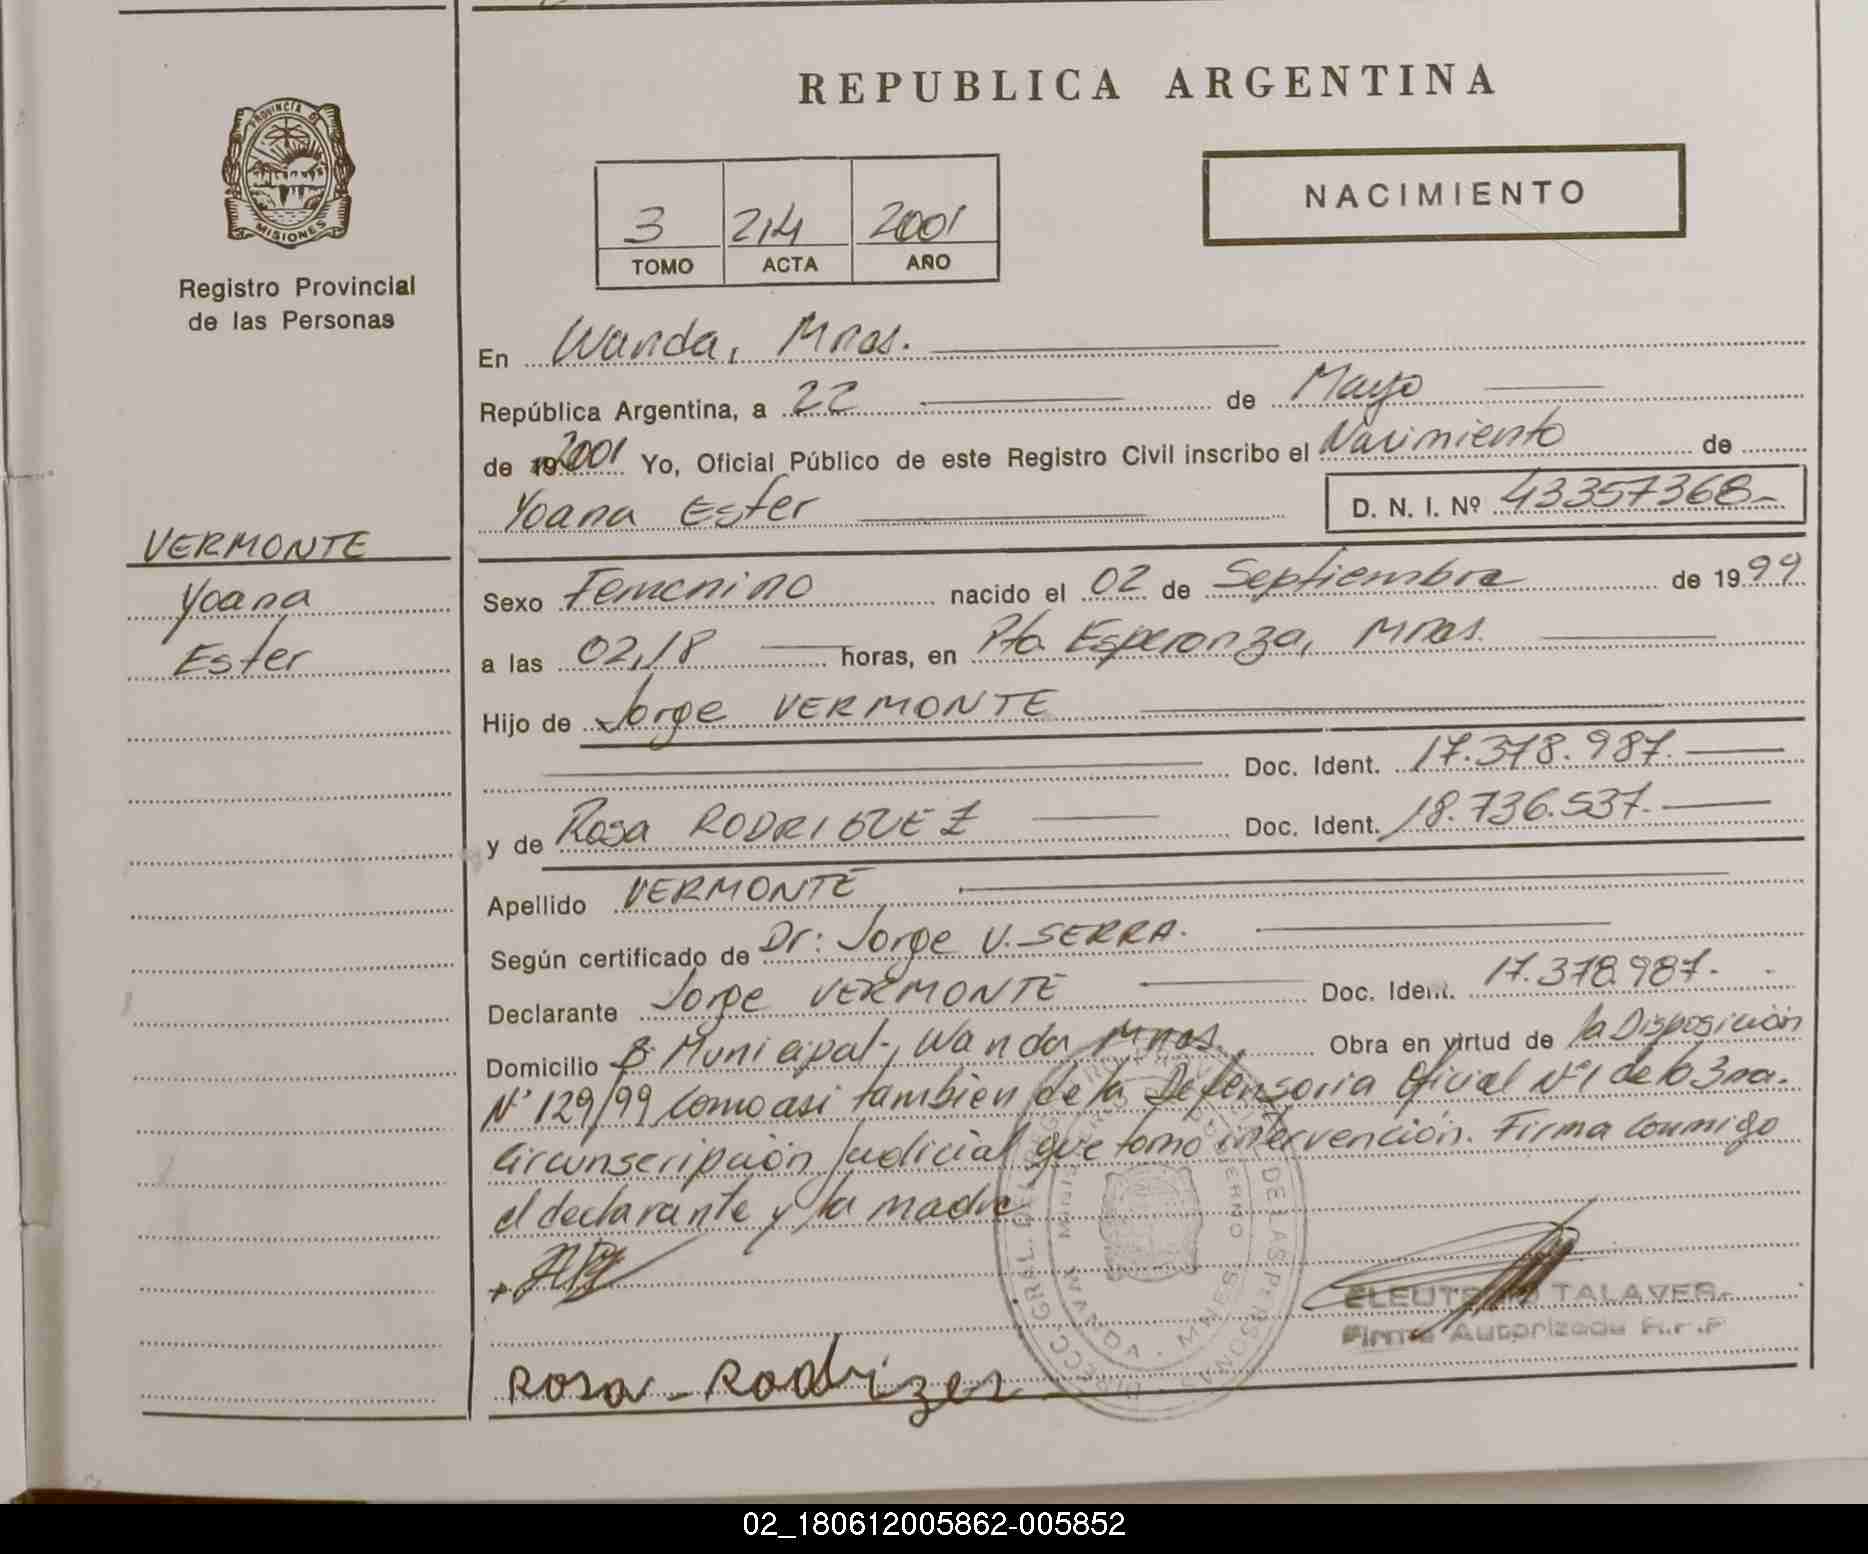 REPUBLICA ARGENTINA
PROVINCIA DE
MISIONES
Registro Provincial
de las Personas
3 214 2001
TOMO ACTA AÑO
NACIMIENTO
En Wanda, Mnes.
República Argentina, a 22 de Mayo
de 19 2001 Yo, Oficial Público de este Registro Civil inscribo el Nacimiento de
Yoana Ester D. N. I. Nº 43357368
VERMONTE
Yoana
Ester
Sexo Femenino nacido el 02 de Septiembre de 1999
a las 02,18 horas, en Pto. Esperanza, Mnes.
Hijo de Jorge VERMONTE
Doc. Ident. 17.378.987.
y de Rosa RODRIGUEZ Doc. Ident. 18.736.537.
Apellido VERMONTE
Según certificado de Dr: Jorge V. SERRA.
Declarante Jorge VERMONTE Doc. Ident. 17.378.987.
Domicilio Bº Municipal, Wanda Mnes. Obra en virtud de la Disposición
Nº 129/99 como asi tambien de la Defensoria Oficial Nº1 de la 3ra.
circunscripción Judicial que tomo intervención. Firma conmigo
el declarante y la madre
ELEUTERIO TALAVER
Firma Autorizada R.P.P
WANDA - MNES
Rosa - Rodrizes
02_180612005862-005852